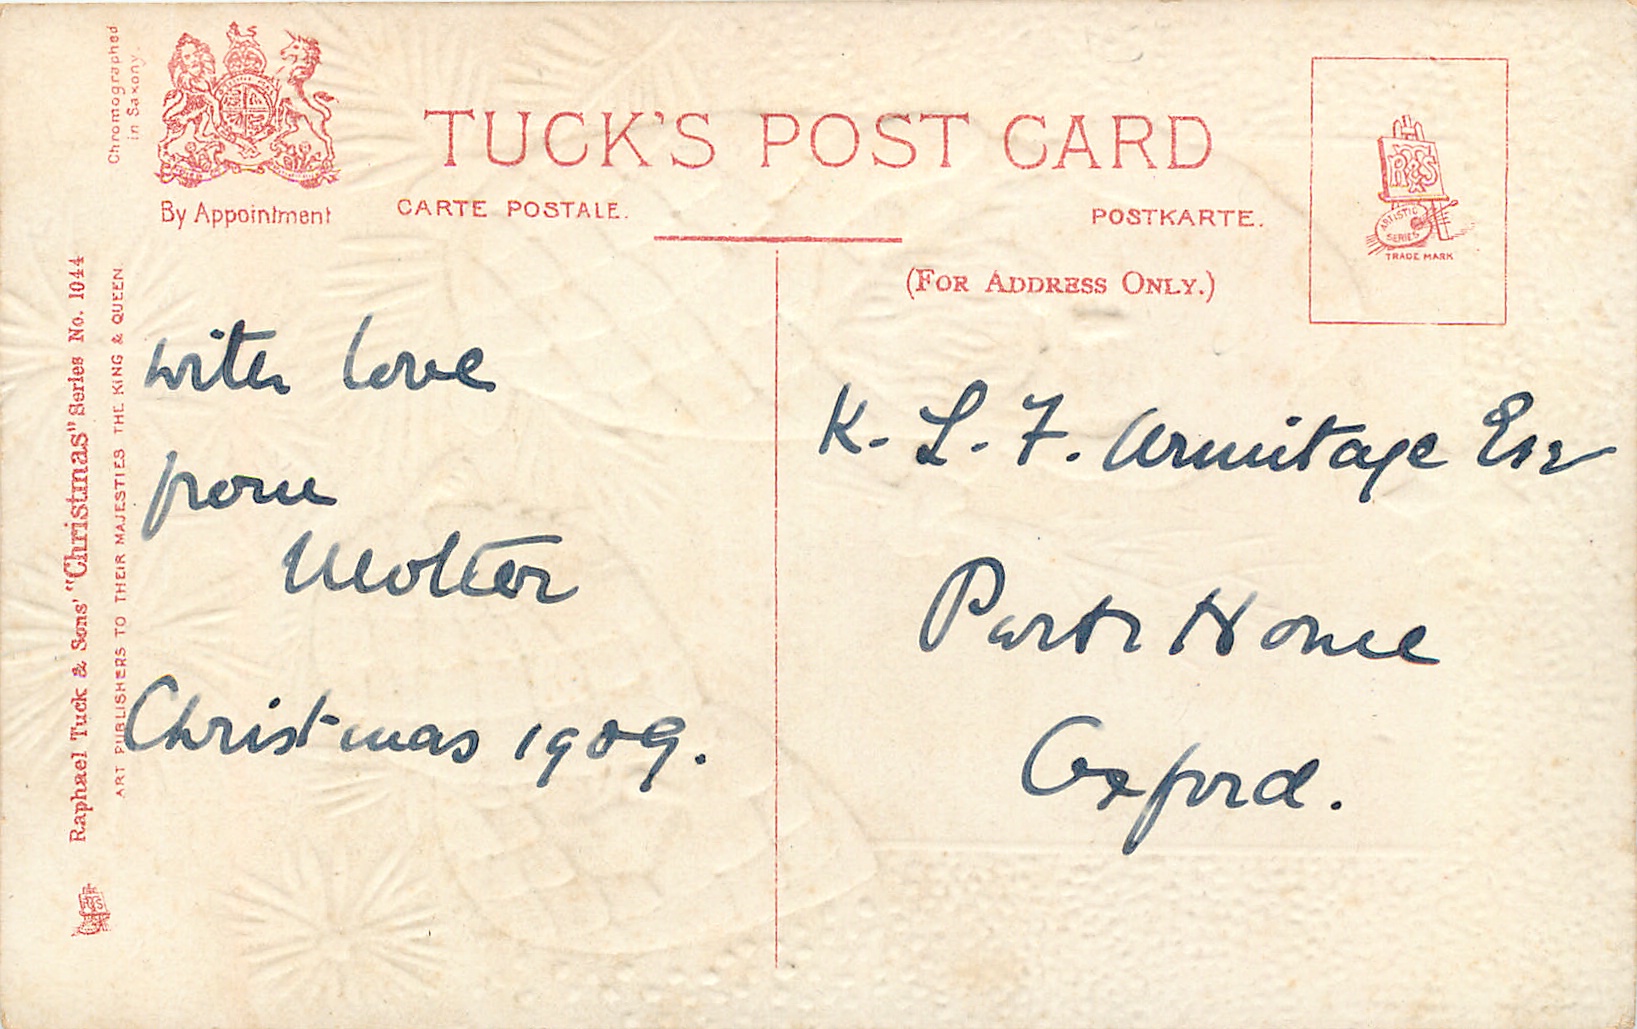 Chromographed
in Saxony.
By Appointment
TUCK'S POST CARD
CARTE POSTALE.
POSTKARTE.
(FOR ADDRESS ONLY.)
R T & S
ARTISTIC
SERIES
TRADE MARK
Raphael Tuck & Sons' "Christmas" Series No. 1044
ART PUBLISHERS TO THEIR MAJESTIES THE KING & QUEEN.
with love
from
Mother
Christmas 1909.
K. L. F. Armitage Esq
Parks House
Oxford.